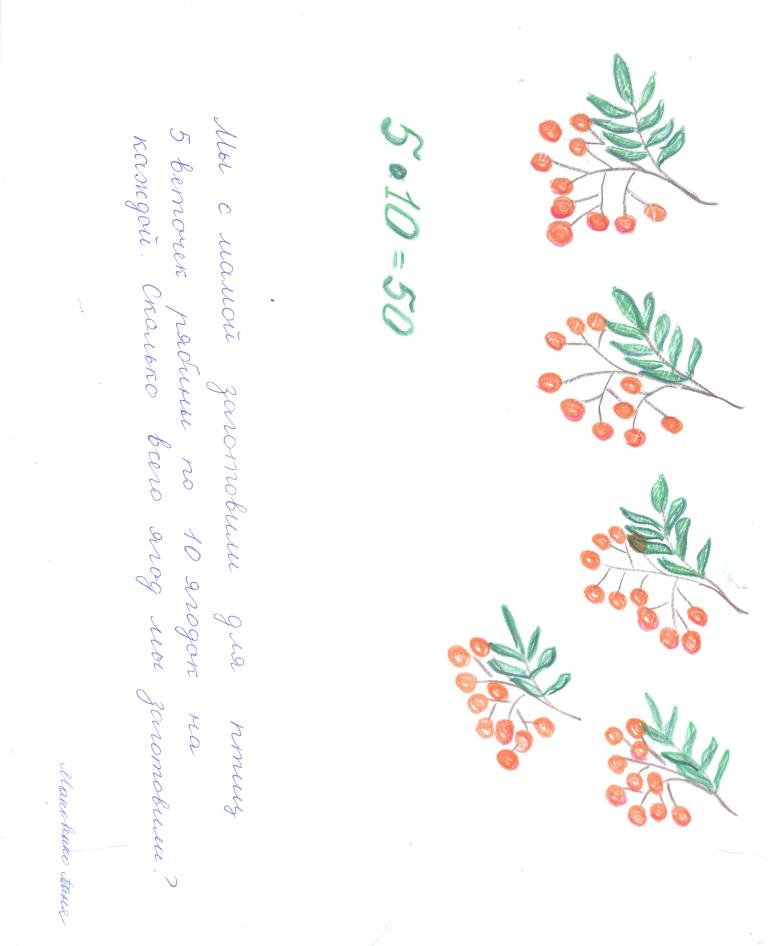 5 • 10 = 50
Мы с мамой заготовили для птиц
5 веточек рябины по 10 ягодок на
каждой. Сколько всего ягод мы заготовили?